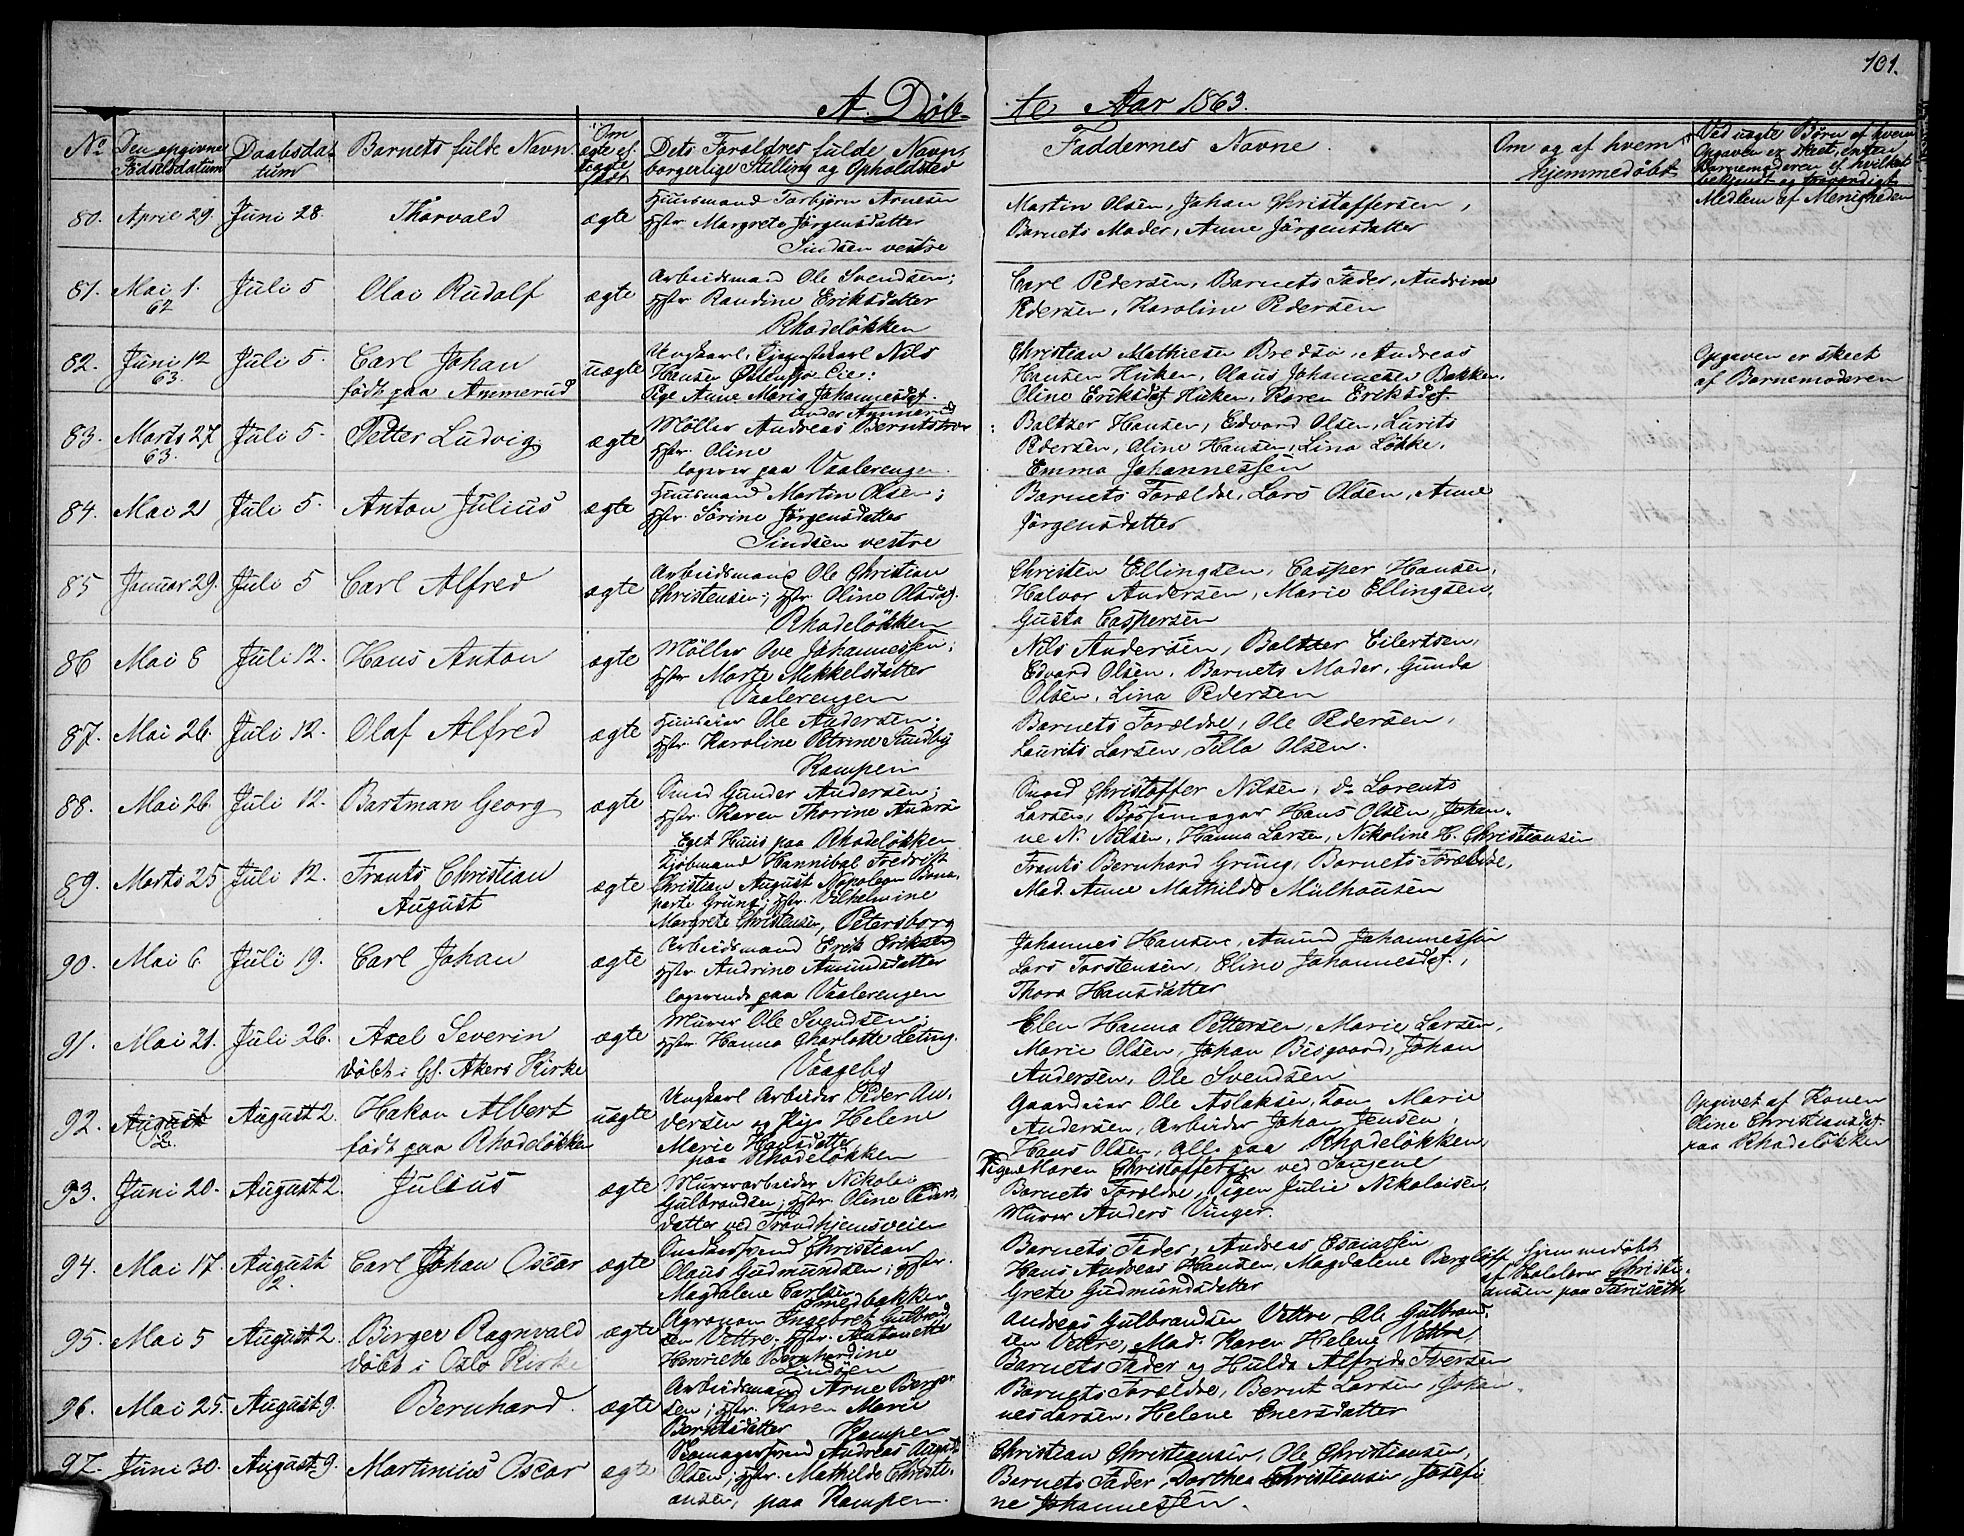 101.
A. Døb-
te Aar 1863.
No
Den opgivne Fødselsdatum
Daabsdatum
Barnets fulde Navn
Om ægte el. uægte født
Dets Forældres fulde Navn, borgerlige Stilling og Opholdsted
Faddernes Navne.
Om og af hvem Hjemmedøbt
Ved uægte Børn af hvem Opgaven er skeet, enten Barnemoderen el. hvilket bekjendt og troværdigt Medlem af Menigheden
80. April 29. Juni 28. Thorvald ægte
Huusmand Torbjørn Arnesen
Hstr Margrete Jørgensdatter
Sindsen vestre
Martin Olsen, Johan Christoffersen,
Barnets Moder, Anne Jörgensdatter
81. Mai 1. Juli 5 Olai Rudolf ægte
62
Arbeidsmand Ole Svendsen;
Hstr Randine Eriksdatter
Rhodeløkken
Carl Pedersen, Barnets Fader, Andrine
Pedersen, Karoline Pedersen
82. Juni 12 Juli 5. Carl Johan uægte
63.
født paa Ammerud
Ungkarl, Tjenestekarl Nils
Hansen Østensjø Eie:
Pige Anne Maria Johannesdf.
under Ammerud
Christian Mathiesen Bredsø, Andreas
Hansen Huken, Olaus Johannesen Bakken,
Oline Eriksdf Huken, Karen Eriksdf
Opgaven er skeet
af Barnemoderen
83. Marts 27 Juli 5. Petter Ludvig ægte
63.
Møller Andreas Berntsen
Hstr. Oline
logerer paa Vaalerengen.
Baltzer Hansen, Edvard Olsen, Lurits
Pedersen, Oline Hansen, Lina Løkke,
Emma Johannessen
84. Mai 21 Juli 5. Anton Julius ægte
Huusmand Martin Olsen;
Hstr. Sörine Jörgensdatter
Sindsen vestre
Barnets Forældre, Lars Olsen, Anne
Jörgensdatter
85 Januar 29. Juli 5 Carl Alfred ægte
Arbeidsmand Ole Christian
Christensen; Hstr. Oline Olsdf.
Rhodeløkken
Christen Ellingsen, Casper Hansen,
Halvor Andersen, Marie Ellingsen,
Gusta Caspersen
86 Mai 8 Juli 12. Hans Anton ægte
Møller Ove Johannessen;
Hstr Marte Mekkelsdatter
Vaalerengen
Nils Andersen, Baltzer Eilertsen,
Edvard Olsen, Barnets Moder, Gunda
Olsen, Lina Pedersen
87. Mai 26. Juli 12. Olaf Alfred ægte
Huuseier Ole Andersen;
Hstr. Karoline Petrine Sundby
Kampen
Barnets Forældre, Ole Pedersen,
Laurits Larsen, Tilla Olsen.
88. Mai 26 Juli 12. Bartman Georg ægte
Smed Gunder Andersen;
Hstr. Karen Thorine Anders
Eget Huus paa Rhodeløkken
Smed Christoffer Nilsen, do Lorents
Larsen, Bössemager Hans Olsen, Johan-
ne N. Nilsen, Hanna Larsen, Nikoline H. Christiansen
89. Marts 25 Juli 12. Frants Christian ægte
August
Hannibal Fredrik
Christian August Napoleon Bona-
parte Grung; Hstr. Vilhelmine
Margrete Christensen, Petersborg
Frants Bernhard Grung, Barnets Forældre,
Mad. Anne Mathilde Mülhausen
90. Mai 6 Juli 19. Carl Johan ægte
Arbeidsmand Erik Eriksen
Hstr. Andrine Amundsdatter
logerende paa Vaalerengen
Johannes Hansen, Amund Johannessen
Lars Torstensen, Eline Johannesdf.,
Thora Hansdatter
91. Mai 21. Juli 26. Axel Severin ægte
döbt i Gl. Akers Kirke
Murer Ole Svendsen;
Hstr Hanna Charlotte Leting.
Vaageby
Elen Hanna Pettersen, Marie Larsen,
Marie Olsen, Johan Bisgaard, Johan
Andersen, Ole Svendsen
92. August August 2. Hakon Albert uægte
født paa Rhodeløkken
Ungkarl Arbeider Peder An-
dersen og Pige Helene
Marie Hansdatter
paa Rhodeløkken
Gaardeier Ole Aslaksen, Kone Marie
Andersen, Arbeider Johan Jensen,
Hans Olsen, alle paa Rhodeløkken,
Pigen Maren Christoffersen ved Saugene
Opgivet af Konen
Oline Christiansdf.
paa Rhodeløkken
93. Juni 20. August 2. Julius ægte
Murerarbeider Nikolai
Gulbrandsen; Hstr. Oline Peders-
datter ved Trondhjemsveien
Barnets Forældre, Pigen Julie Nikolaisen,
Murer Anders Vinger.
94. Mai 17. August Carl Johan Oscar ægte
2.
Snedkersvend Christian
Olaus Gudmundsen; Hstr.
Magdalene Carlsen
Smedbakken
Barnets Fader, Andreas Esaiassen
Hans Andreas Hansen, Magdalene Bergløff,
Grete Gudmundsdatter
hjemmedøbt
af Skolelærer Christi-
ansen paa
95. Mai 5 August 2. Birger Ragnvald ægte
döbt i Oslo Kirke
Agronom Ingebret Gulbrand-
sen Vettre. Hstr. Antonette
Henriette Bernhardine
Lindöen
Andreas Gulbrandsen Vettre, Ole Gulbrand-
sen Vettre, Mad. Karen Helene Vettre,
Barnets Fader og Hulda Alfride Iversen
96. Mai 25. August 9. Bernhard. ægte
Arbeidsmand Arne Berge-
sen; Hstr. Karen Marie
Berntsdatter Kampen
Barnets Forældre, Bernt Larsen, Johan-
nes Larsen, Helene Enersdatter
97. Juni 30. August 9. Martinius Oscar ægte
Skomagersvend Andreas August
Olsen, Hstr. Mathilde Christi-
ansen, paa Kampen.
Christian Christiansen, Ole Christiansen,
Barnets Fader, Dorthea Christiansen, Josefi-
ne Johannessen.